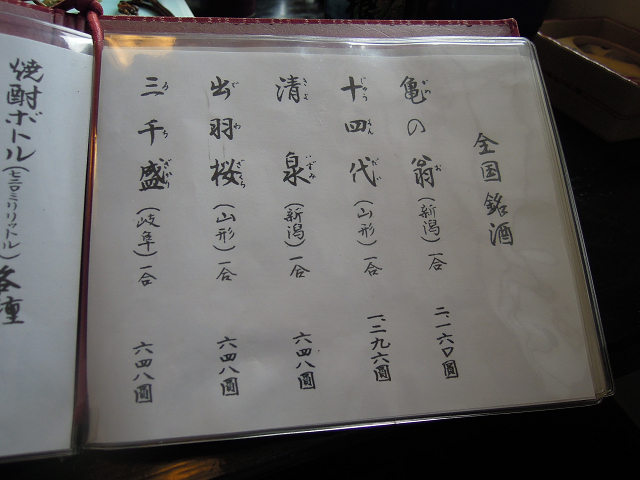 全国銘酒
亀の翁（新潟）一合 二、一六〇圓
十四代（山形）一合 一、二九六圓
清泉（新潟）一合 六四八圓
出羽桜（山形）一合 六四八圓
三千盛（岐阜）一合 六四八圓
焼酎ボトル（七二〇ミリリットル）各種